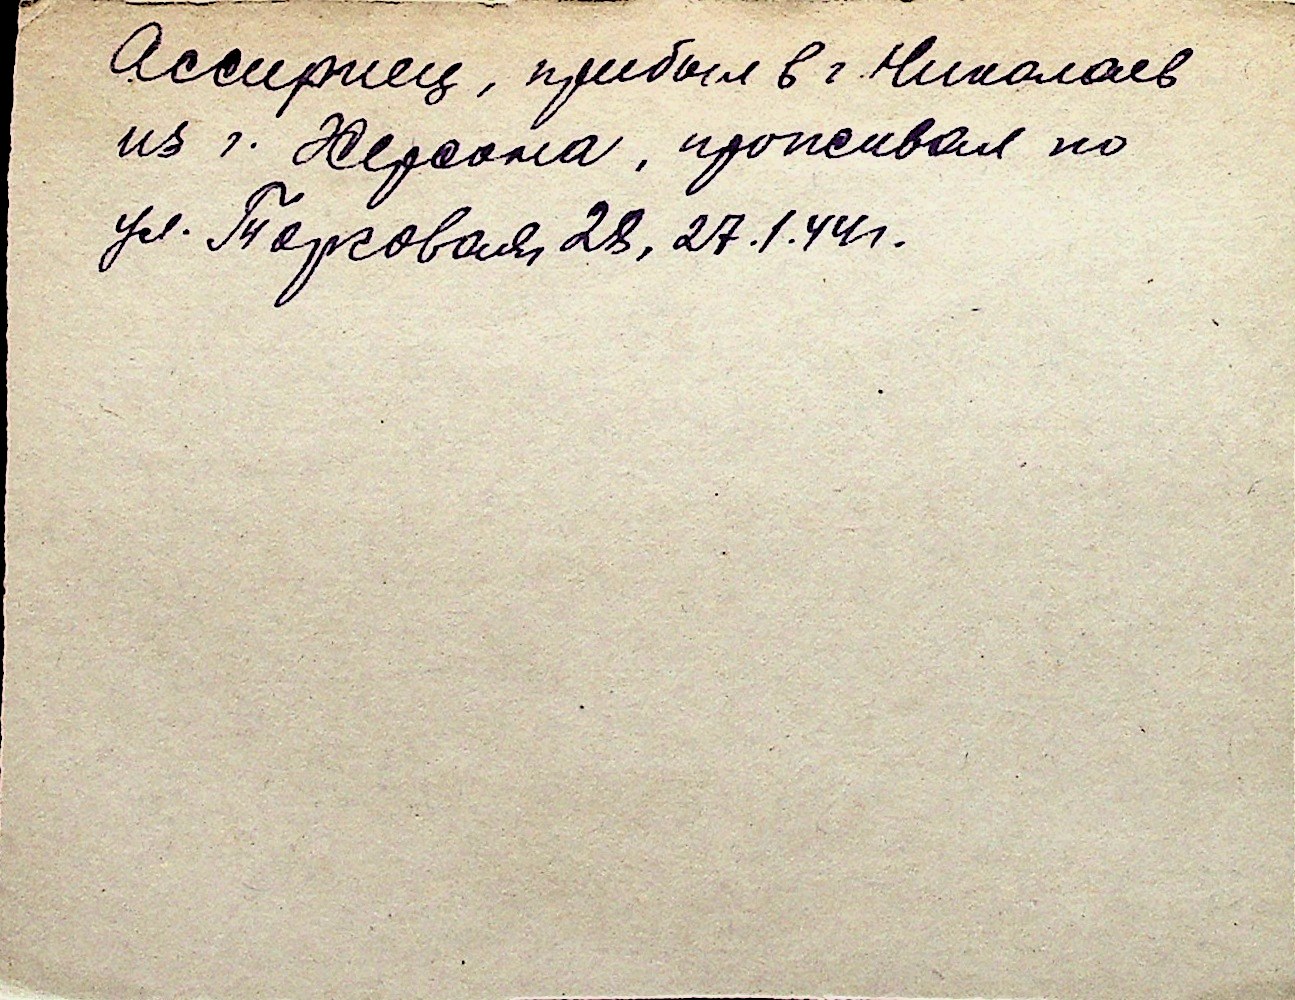 Ассириец, прибыл в г. Николаев
из г. Херсона, проживал по
ул. Торговая, 28, 27.1.44г.